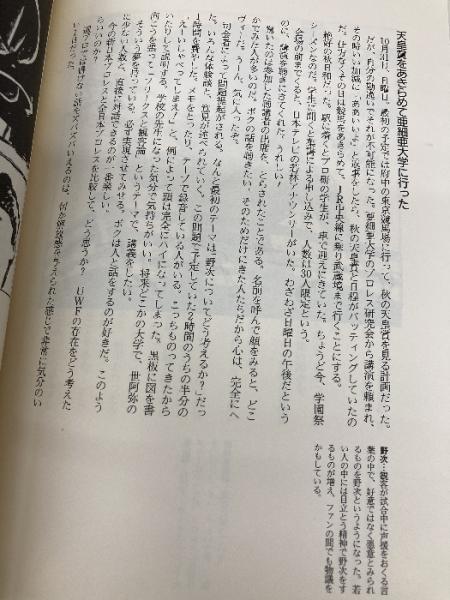 天皇賞をあきらめて亜細亜大学に行った
10月31日、日曜日。最初の予定では府中の東京競馬場に行って、秋の天皇賞を見る計画だった。
だが、自分の勘違いでそれが不可能になった。亜細亜大学のプロレス研究会から講演を頼まれ、
その時いい加減に「ああいいよ」と返事をしたら、秋の天皇賞と日程がバッティングしていたの
だ。仕方なくその日は競馬をあきらめて、JR中央線に乗り武蔵境まで行くことにする。
絶好の秋日和だった。駅に着くとプロ研の学生が、車で迎えにきていた。ちょうど今、学園祭
シーズンなのだ。学生に聞くと講演による申し込みで、人数は30人限定という。
会場の前までくると、日本テレビの若林アナウンサーがいた。わざわざ日曜日の午後だという
のに、講演を聴きにきてくれた。うれしい！
驚いたのは参加した受講者の出席を、とらされたことである。名前を呼んで顔をみると、どこ
かでみた人が多いのだ。ボクの話を聴きたい、そのためだけにきた人たちだから心は、完全にヘ
ヴィだった。うーん、気に入ったぞ。
司会者によって問題提起がされる。なんと最初のテーマは「野次についてどう考えるか？」だっ
た。いろんな体験談と、意見が述べられていく。この問題で予定していた2時間のうちの半分の
1時間を費やした。メモをとったり、テープで録音している人がいる。こっちものってきたから
「えいしゃべってしまえ！」と、例によって頭は完全にハイになってしまった。黒板に図を書
いたりして説明する。学校の先生になった気分で気持ちがいい。将来どこかの大学で、世阿弥の
向こうを張って「プリークスと観客論」というテーマで、講義をしたい。
そういう夢を持っている。必ず実現させてみせる。ボクは人と話をするのが好きだ。このよう
に少ない人数と、直接に対話できるのが一番楽しい。
「今の新日本プロレスと全日本プロレスを比較して、どう思うか？ UWFの存在をどう考えた
らいいのか？」
野次…観客が試合中に声援をおくる言
葉の中で、好意ではなく悪意とみられ
るものを野次というようになった。若
い人の中には目立とう精神で野次をす
るものが増え、ファンの間でも物議を
かもしている。